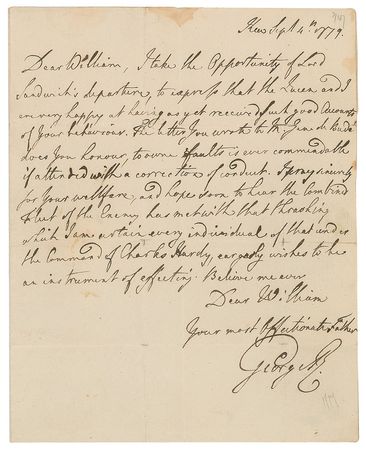 Kew Sept 4th 1779.
Dear William, I take the Opportunity of Lord
Sandwich's departure, to express that the Queen and I
are very happy at having as yet received such good Accounts
of Your behaviour. The letter You wrote to M. Gen. de Budé
does You honour, to owne faults is ever commendable
if attended with a correction of conduct. I pray sincerely
for Your wellfare, and hope soon to hear the combined
Fleet of the Enemy has met with that thrashing
which I am certain every individual of that under
the Command of Charles Hardy, earnestly wishes to be
an instrument of effecting. Believe me ever
Dear William
Your most Affectionate Father
George R.